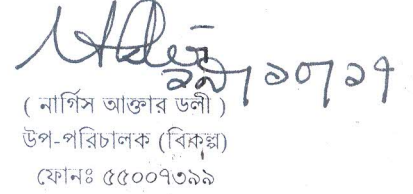 ( নার্গিস আক্তার ডলী )
উপ-পরিচালক (বিকল্প)
ফোনঃ ৫৫০০৭৩৯৯